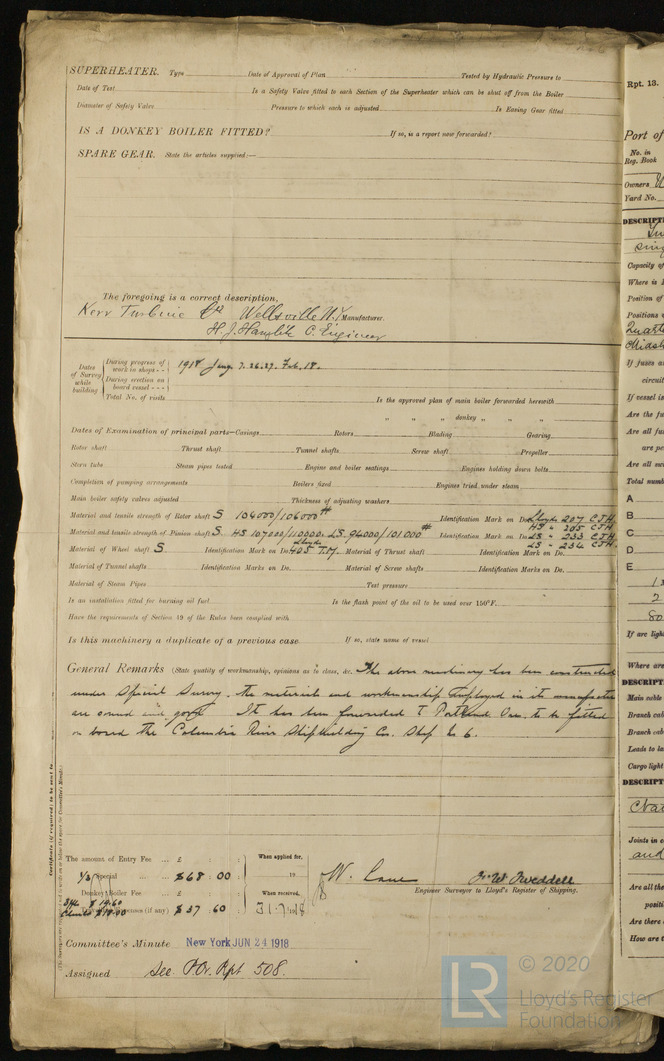 SUPERHEATER. Type Date of Approval of Plan Tested by Hydraulic Pressure to
Date of Test Is a Safety Valve fitted to each Section of the Superheater which can be shut off from the Boiler
Diameter of Safety Valve Pressure to which each is adjusted Is Easing Gear fitted
IS A DONKEY BOILER FITTED? If so, is a report now forwarded?
SPARE GEAR. State the articles supplied:—
The foregoing is a correct description,
Kerr Turbine Co Wellsville N.Y. Manufacturer.
C. Engineer
Dates of Survey while building
During progress of work in shops - - 1918 Jany. 7. 26. 29. Feb. 18.
During erection on board vessel - - -
Total No. of visits Is the approved plan of main boiler forwarded herewith
" " " donkey " " "
Dates of Examination of principal parts—Casings Rotors Blading Gearing
Rotor shaft Thrust shaft Tunnel shafts Screw shaft Propeller
Stern tube Steam pipes tested Engine and boiler seatings Engines holding down bolts
Completion of pumping arrangements Boilers fixed Engines tried under steam
Main boiler safety valves adjusted Thickness of adjusting washers
Material and tensile strength of Rotor shaft S 104000/106000# Identification Mark on Do. Lloyds 207 CJH
Material and tensile strength of Pinion shaft S. HS 107000/110000. LS 94000/101000# Identification Mark on Do. HS " 205 CJH
LS " 233 CJH
LS " 234 CJH
Material of Wheel shaft S. Identification Mark on Do. Lloyds 405 T.M. Material of Thrust shaft Identification Mark on Do.
Material of Tunnel shafts Identification Marks on Do. Material of Screw shafts Identification Marks on Do.
Material of Steam Pipes Test pressure
Is an installation fitted for burning oil fuel Is the flash point of the oil to be used over 150°F.
Have the requirements of Section 49 of the Rules been complied with
Is this machinery a duplicate of a previous case If so, state name of vessel
General Remarks (State quality of workmanship, opinions as to class, &c. The above machinery has been constructed
under Special Survey. The materials and workmanship employed in its manufacture
are sound and good. It has been forwarded to Portland Ore. to be fitted
on board the Columbia River Shipbuilding Co. Ship No 6.
Certificate (if required) to be sent to
The amount of Entry Fee ... £ : : When applied for,
1/3 Special ... $68.00 : 19
Donkey Boiler Fee ... £ : : When received,
$19.60
$18.00 Expenses (if any) $37.60 31.7.1918
W. Lane J. W. Tweddell
Engineer Surveyor to Lloyd's Register of Shipping.
Committee's Minute New York JUN 24 1918
Assigned See P.Or. Rpt 508.
Rpt. 13.
Port of
No. in
Reg. Book
Owners
Yard No.
DESCRIPT
Capacity of
Where is
Position of
Positions
If fuses
circuit
If vessel is
Are the fu
Are all fu
are pe
Are all
Total numb
A
B
C
D
E
2
80
If arc ligh
Where are
DESCRIPT
Main cable
Branch cab
Branch cab
Leads to la
Cargo light
DESCRIPT
Joints in c
and
Are all the
positi
Are there
How are t
LR © 2020
Lloyd's Register
Foundation